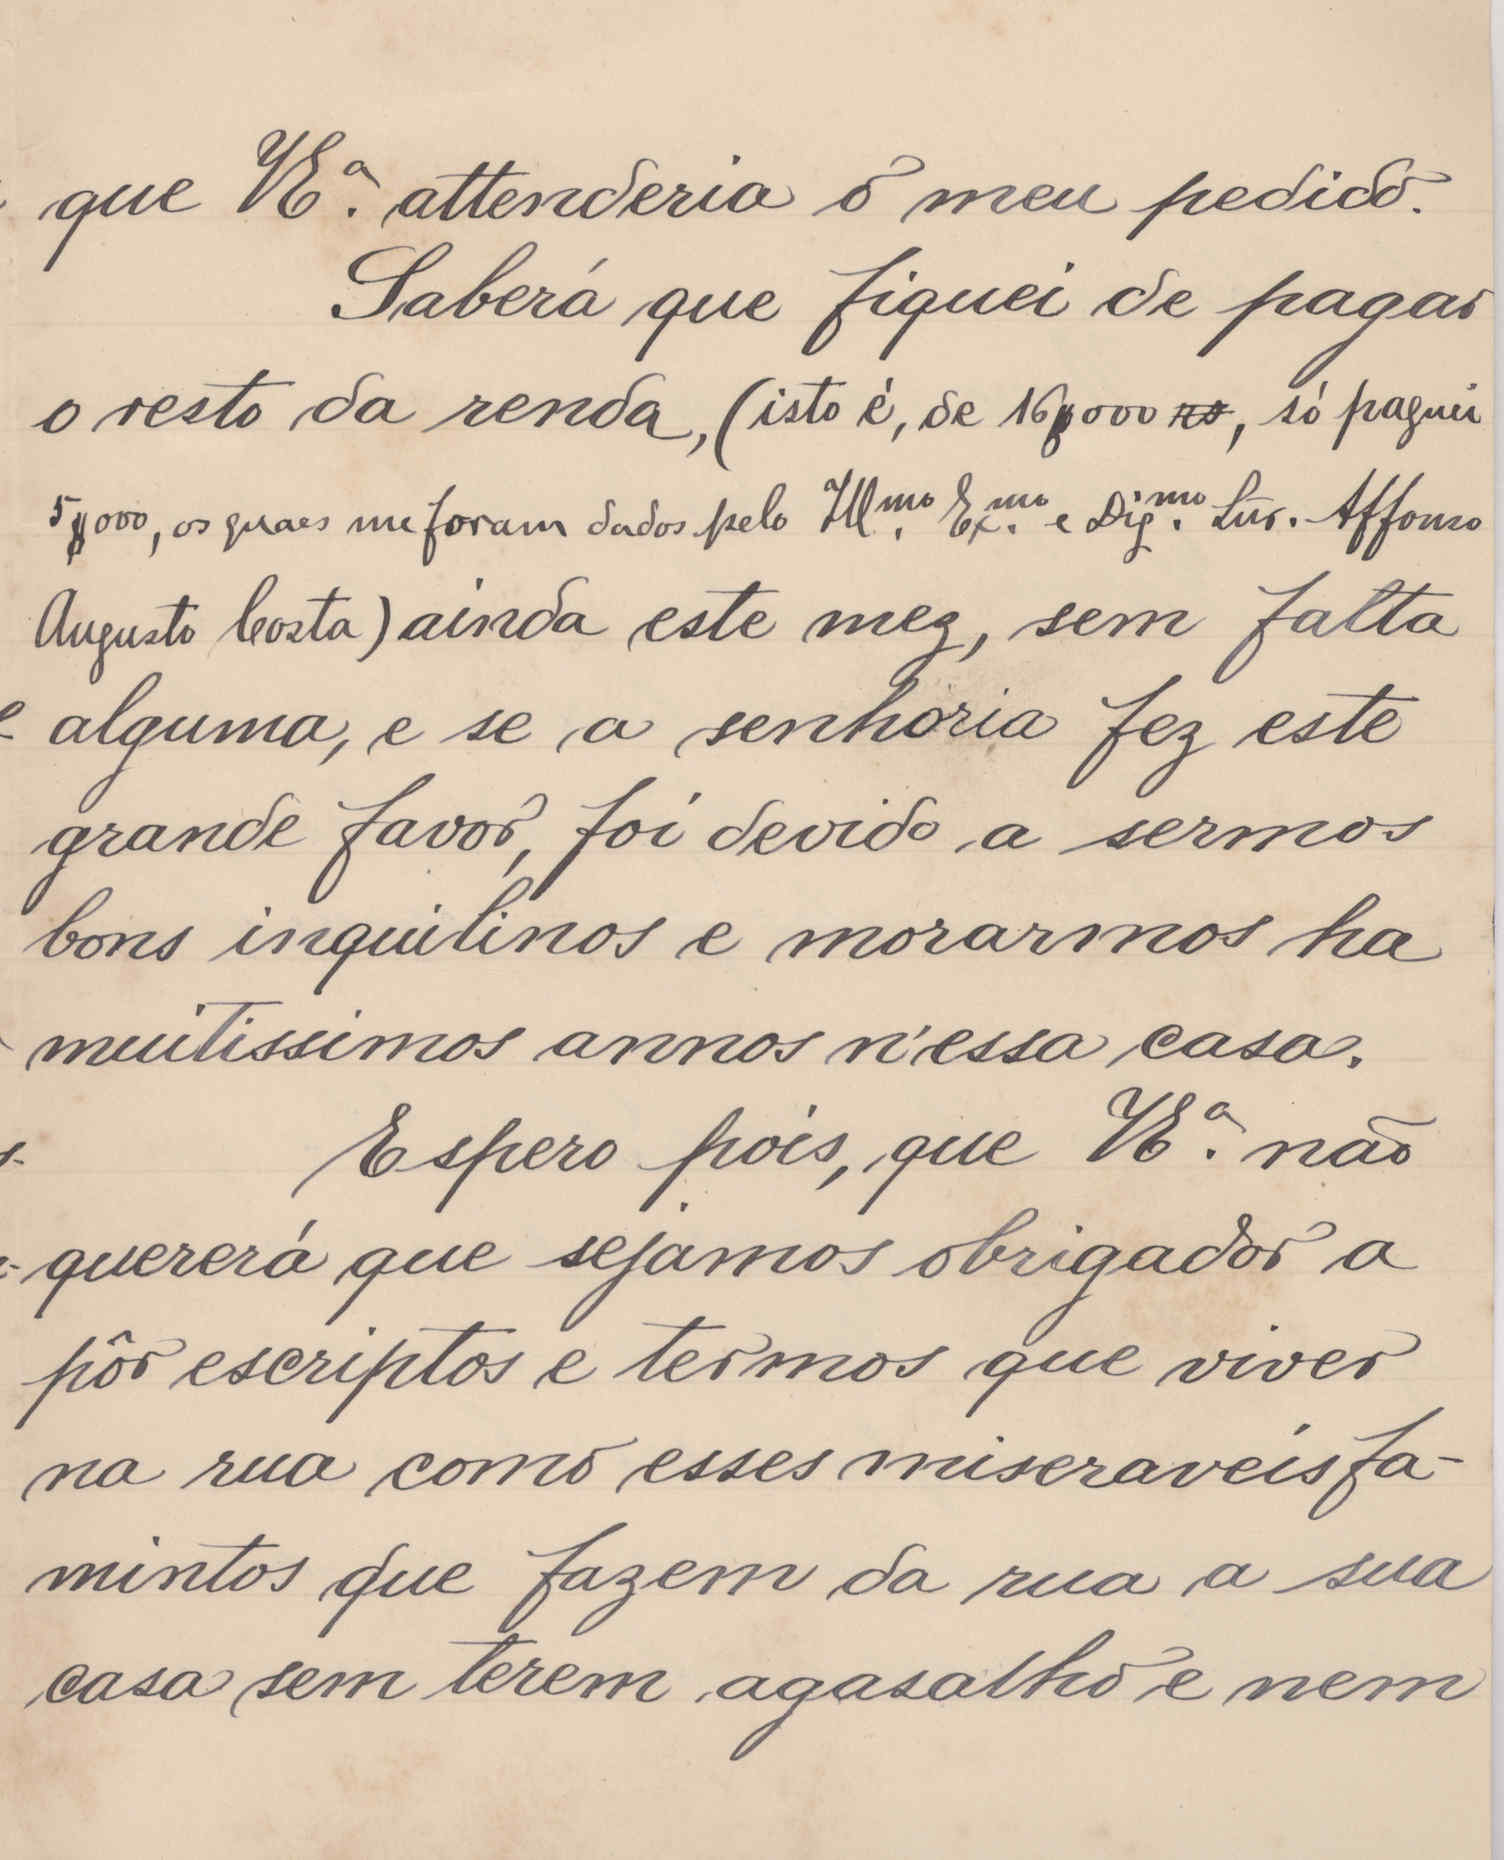 que VEª. attenderia o meu pedido.
Saberá que fiquei de pagar
o resto da renda, (isto é, de 16$000 rs, só paguei
5$000, os quaes me foram dados pelo Illmo. Exmo. e Digmo. Snr. Affonso
Augusto Costa) ainda este mez, sem falta
alguma, e se a senhoria fez este
grande favor, foi devido a sermos
bons inquilinos e morarmos ha
muitissimos annos n'essa casa.
Espero pois, que VEª. não
quererá que sejamos obrigados a
pôr escriptos e termos que viver
na rua como esses miseraveis fa-
mintos que fazem da rua a sua
casa sem terem agasalho e nem